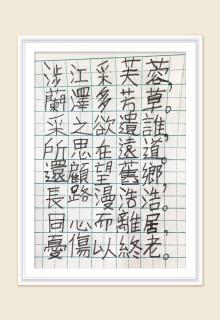 涉江采芙蓉，
蘭澤多芳草。
采之欲遺誰，
所思在遠道。
還顧望舊鄉，
長路漫浩浩。
同心而離居，
憂傷以終老。